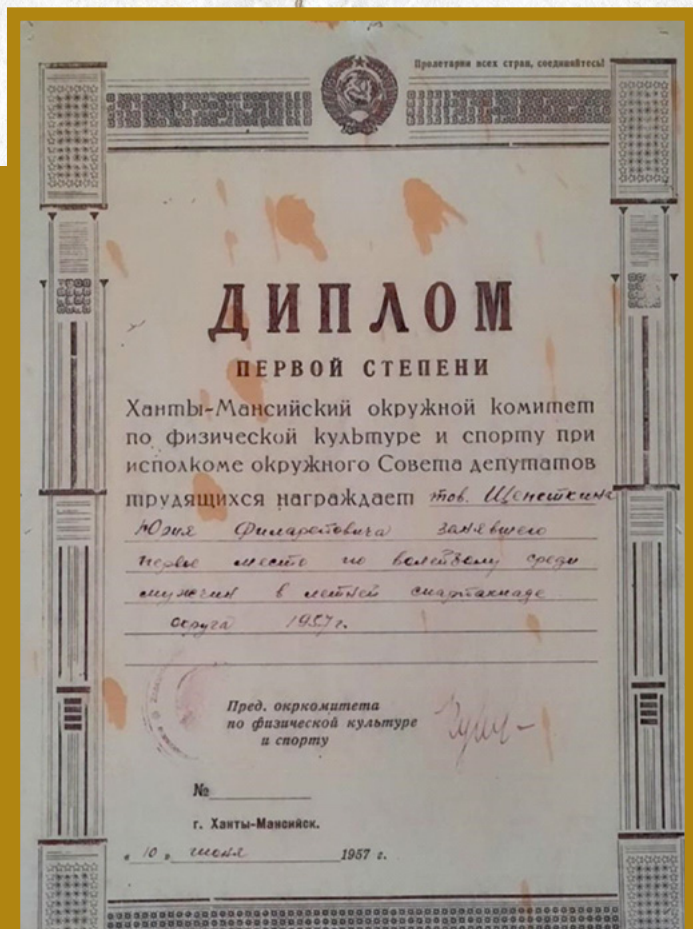 Пролетарии всех стран, соединяйтесь!
ДИПЛОМ
ПЕРВОЙ СТЕПЕНИ
Ханты-Мансийский окружной комитет
по физической культуре и спорту при
исполкоме окружного Совета депутатов
трудящихся награждает тов. Щенёткина
Юрия Филаретовича занявшего
первое место по волейболу среди
мужчин в летней спартакиаде
округа 1957 г.
Пред. окркомитета
по физической культуре
и спорту
№
г. Ханты-Мансийск.
« 10 » июня 1957 г.